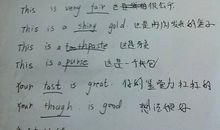 This is very fair 这是很公平
This is a shing gold. 这是再闪发光的金子
This is a toothpaste 这是
This is a purse 这是一个钱包
Your tast is great. 你的鉴赏力杠杠的
Your though is good 想法很好